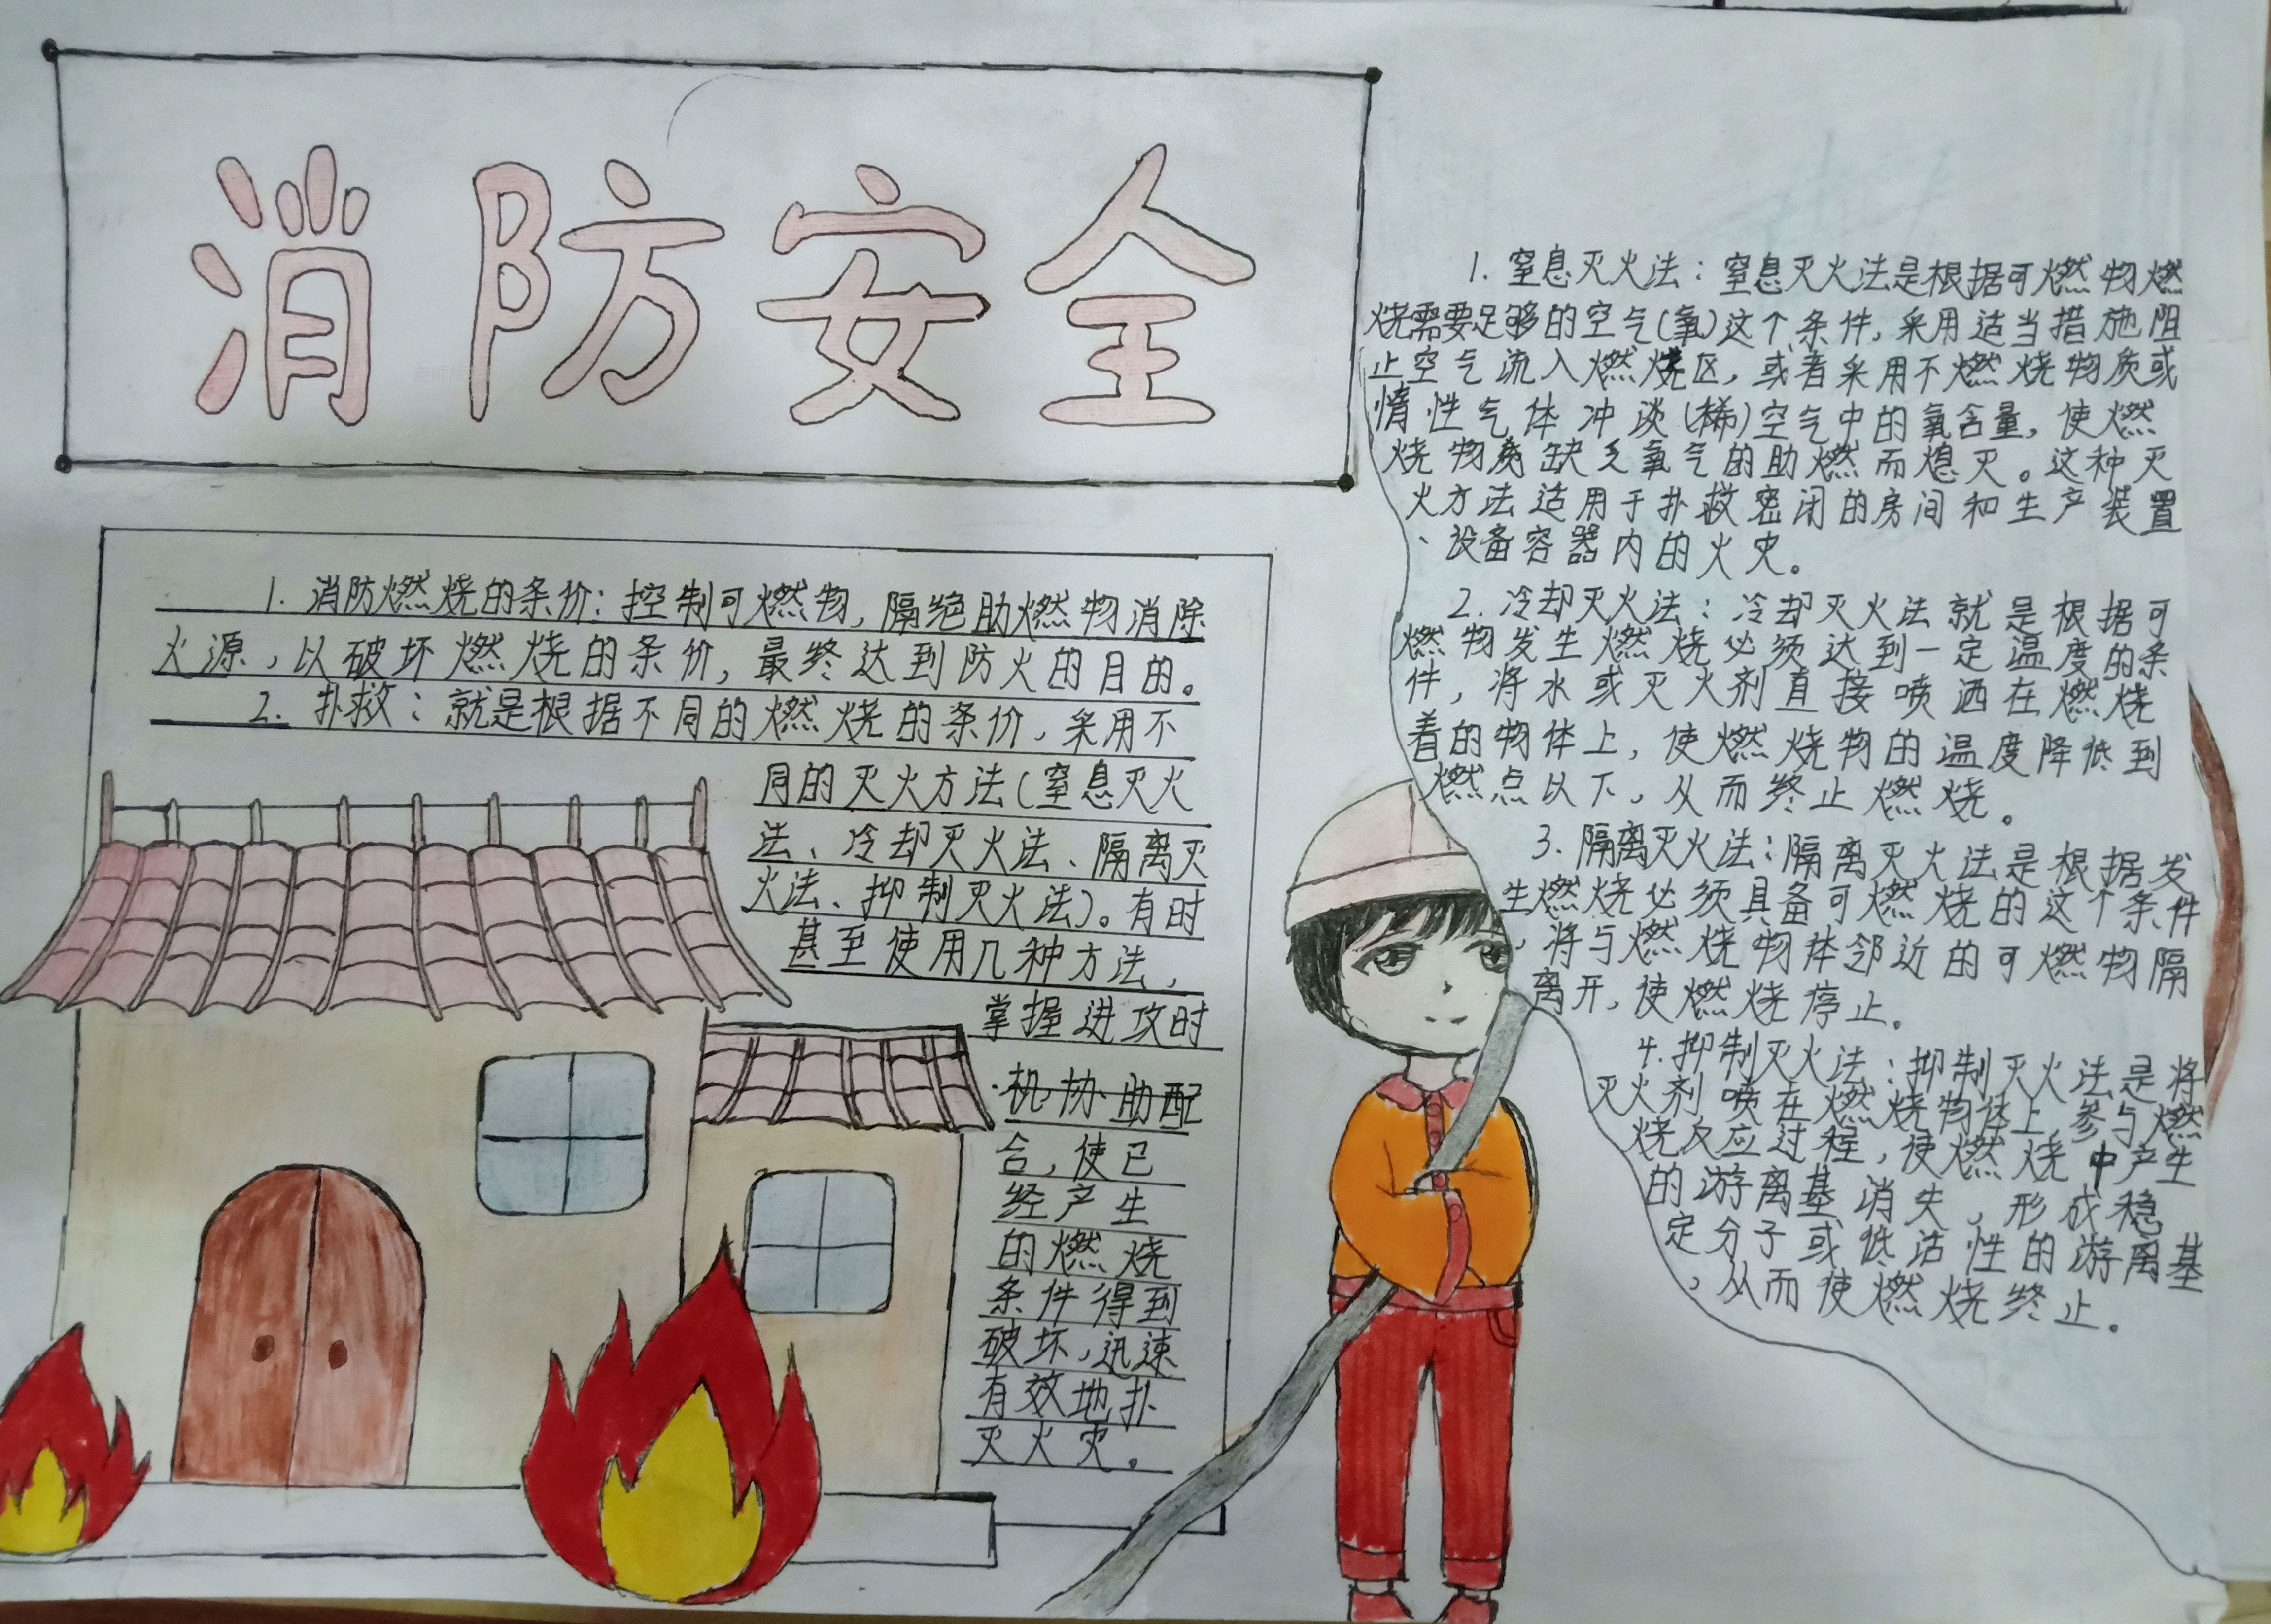 消防安全
1. 消防燃烧的条价：控制可燃物，隔绝助燃物消除
火源，以破坏燃烧的条价，最终达到防火的目的。
2. 扑救：就是根据不同的燃烧的条价，采用不
同的灭火方法（窒息灭火
法、冷却灭火法、隔离灭
火法、抑制灭火法）。有时
甚至使用几种方法，
掌握进攻时
机协助配
合，使已
经产生
的燃烧
条件得到
破坏，迅速
有效地扑
灭火灾。
1. 窒息灭火法：窒息灭火法是根据可燃物燃
烧需要足够的空气（氧）这个条件，采用适当措施阻
止空气流入燃烧区，或者采用不燃烧物质或
惰性气体冲淡（稀）空气中的氧含量，使燃
烧物质缺乏氧气的助燃而熄灭。这种灭
火方法适用于扑救密闭的房间和生产装置
、设备容器内的火灾。
2. 冷却灭火法：冷却灭火法就是根据可
燃物发生燃烧必须达到一定温度的条
件，将水或灭火剂直接喷洒在燃烧
着的物体上，使燃烧物的温度降低到
燃点以下，从而终止燃烧。
3. 隔离灭火法：隔离灭火法是根据发
生燃烧必须具备可燃烧的这个条件
，将与燃烧物体邻近的可燃物隔
离开，使燃烧停止。
4. 抑制灭火法：抑制灭火法是将
灭火剂喷在燃烧物体上，参与燃
烧反应过程，使燃烧中产生
的游离基消失，形成稳
定分子或低活性的游离基
，从而使燃烧终止。